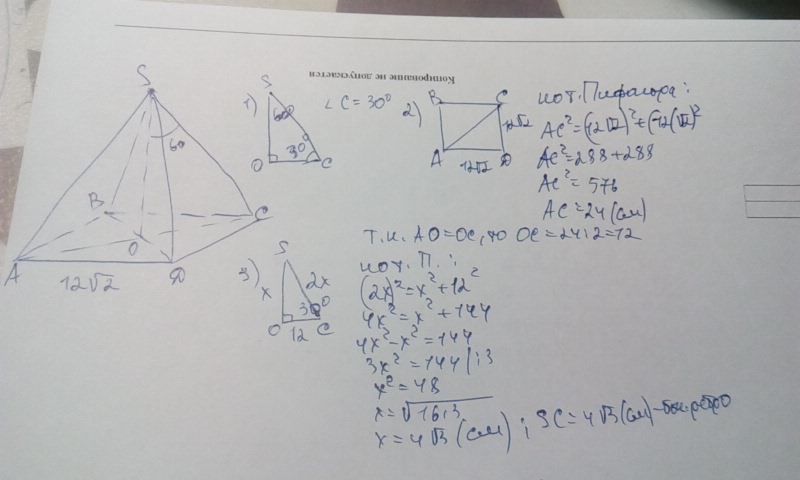 Копирование не допускается
S
60
B
C
O
A
D
12√2
1)
S
60°
30°
O
C
∠C = 30°
2)
B
C
12√2
A
D
12√2
по т. Пифагора:
AC² = (12√2)² + (12√2)²
AC² = 288 + 288
AC² = 576
AC = 24 (см)
Т.к. AO = OC, то OC = 24:2 = 12
3)
S
x
2x
30°
O
C
12
по т. П.:
(2x)² = x² + 12²
4x² = x² + 144
4x² - x² = 144
3x² = 144 | :3
x² = 48
x = √16·3
x = 4√3 (см) ; SC = 4√3 (см) - бок. ребро